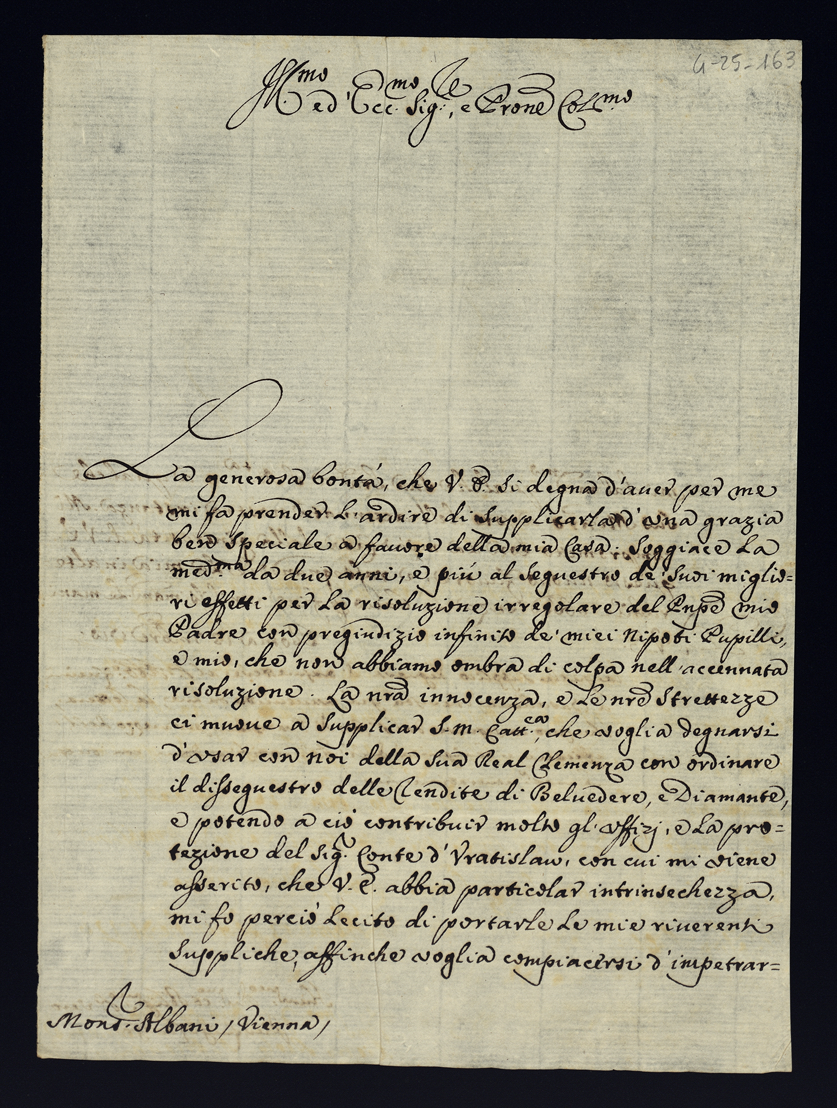 4-25-163
Ill.mo ed Ecc.mo Sig.re, e Prone Col.mo
La generosa bontá, che V. E. si degna d'aver per me
mi fa prender l'ardire di supplicarla d'una grazia
ben speciale a favore della mia Casa. Soggiace la
med.ma da due anni, e piú al sequestro de' suoi miglio=
ri effetti per la risoluzione irregolare del Pnpe mio
Padre con pregiudizio infinito de' miei Nipoti Pupilli,
e mio, che non abbiamo ombra di colpa nell'accennata
risoluzione. La nrã innocenza, e le nrẽ strettezze
ci muove a supplicar S. M. Catt.ca, che voglia degnarsi
d'usar con noi della sua Real Clemenza con ordinare
il dissequestro delle Rendite di Belvedere, e Diamante,
e potendo a ció contribuir molto gl'uffizj, e la pro=
tezione del Sig.r Conte d'Vratislaw, con cui mi viene
asserito, che V. E. abbia particolar intrinsechezza,
mi fo perció lecito di portarle le mie riverenti
suppliche, affinche voglia compiacersi d'impetrar=
Mons.r Albani / Vienna /